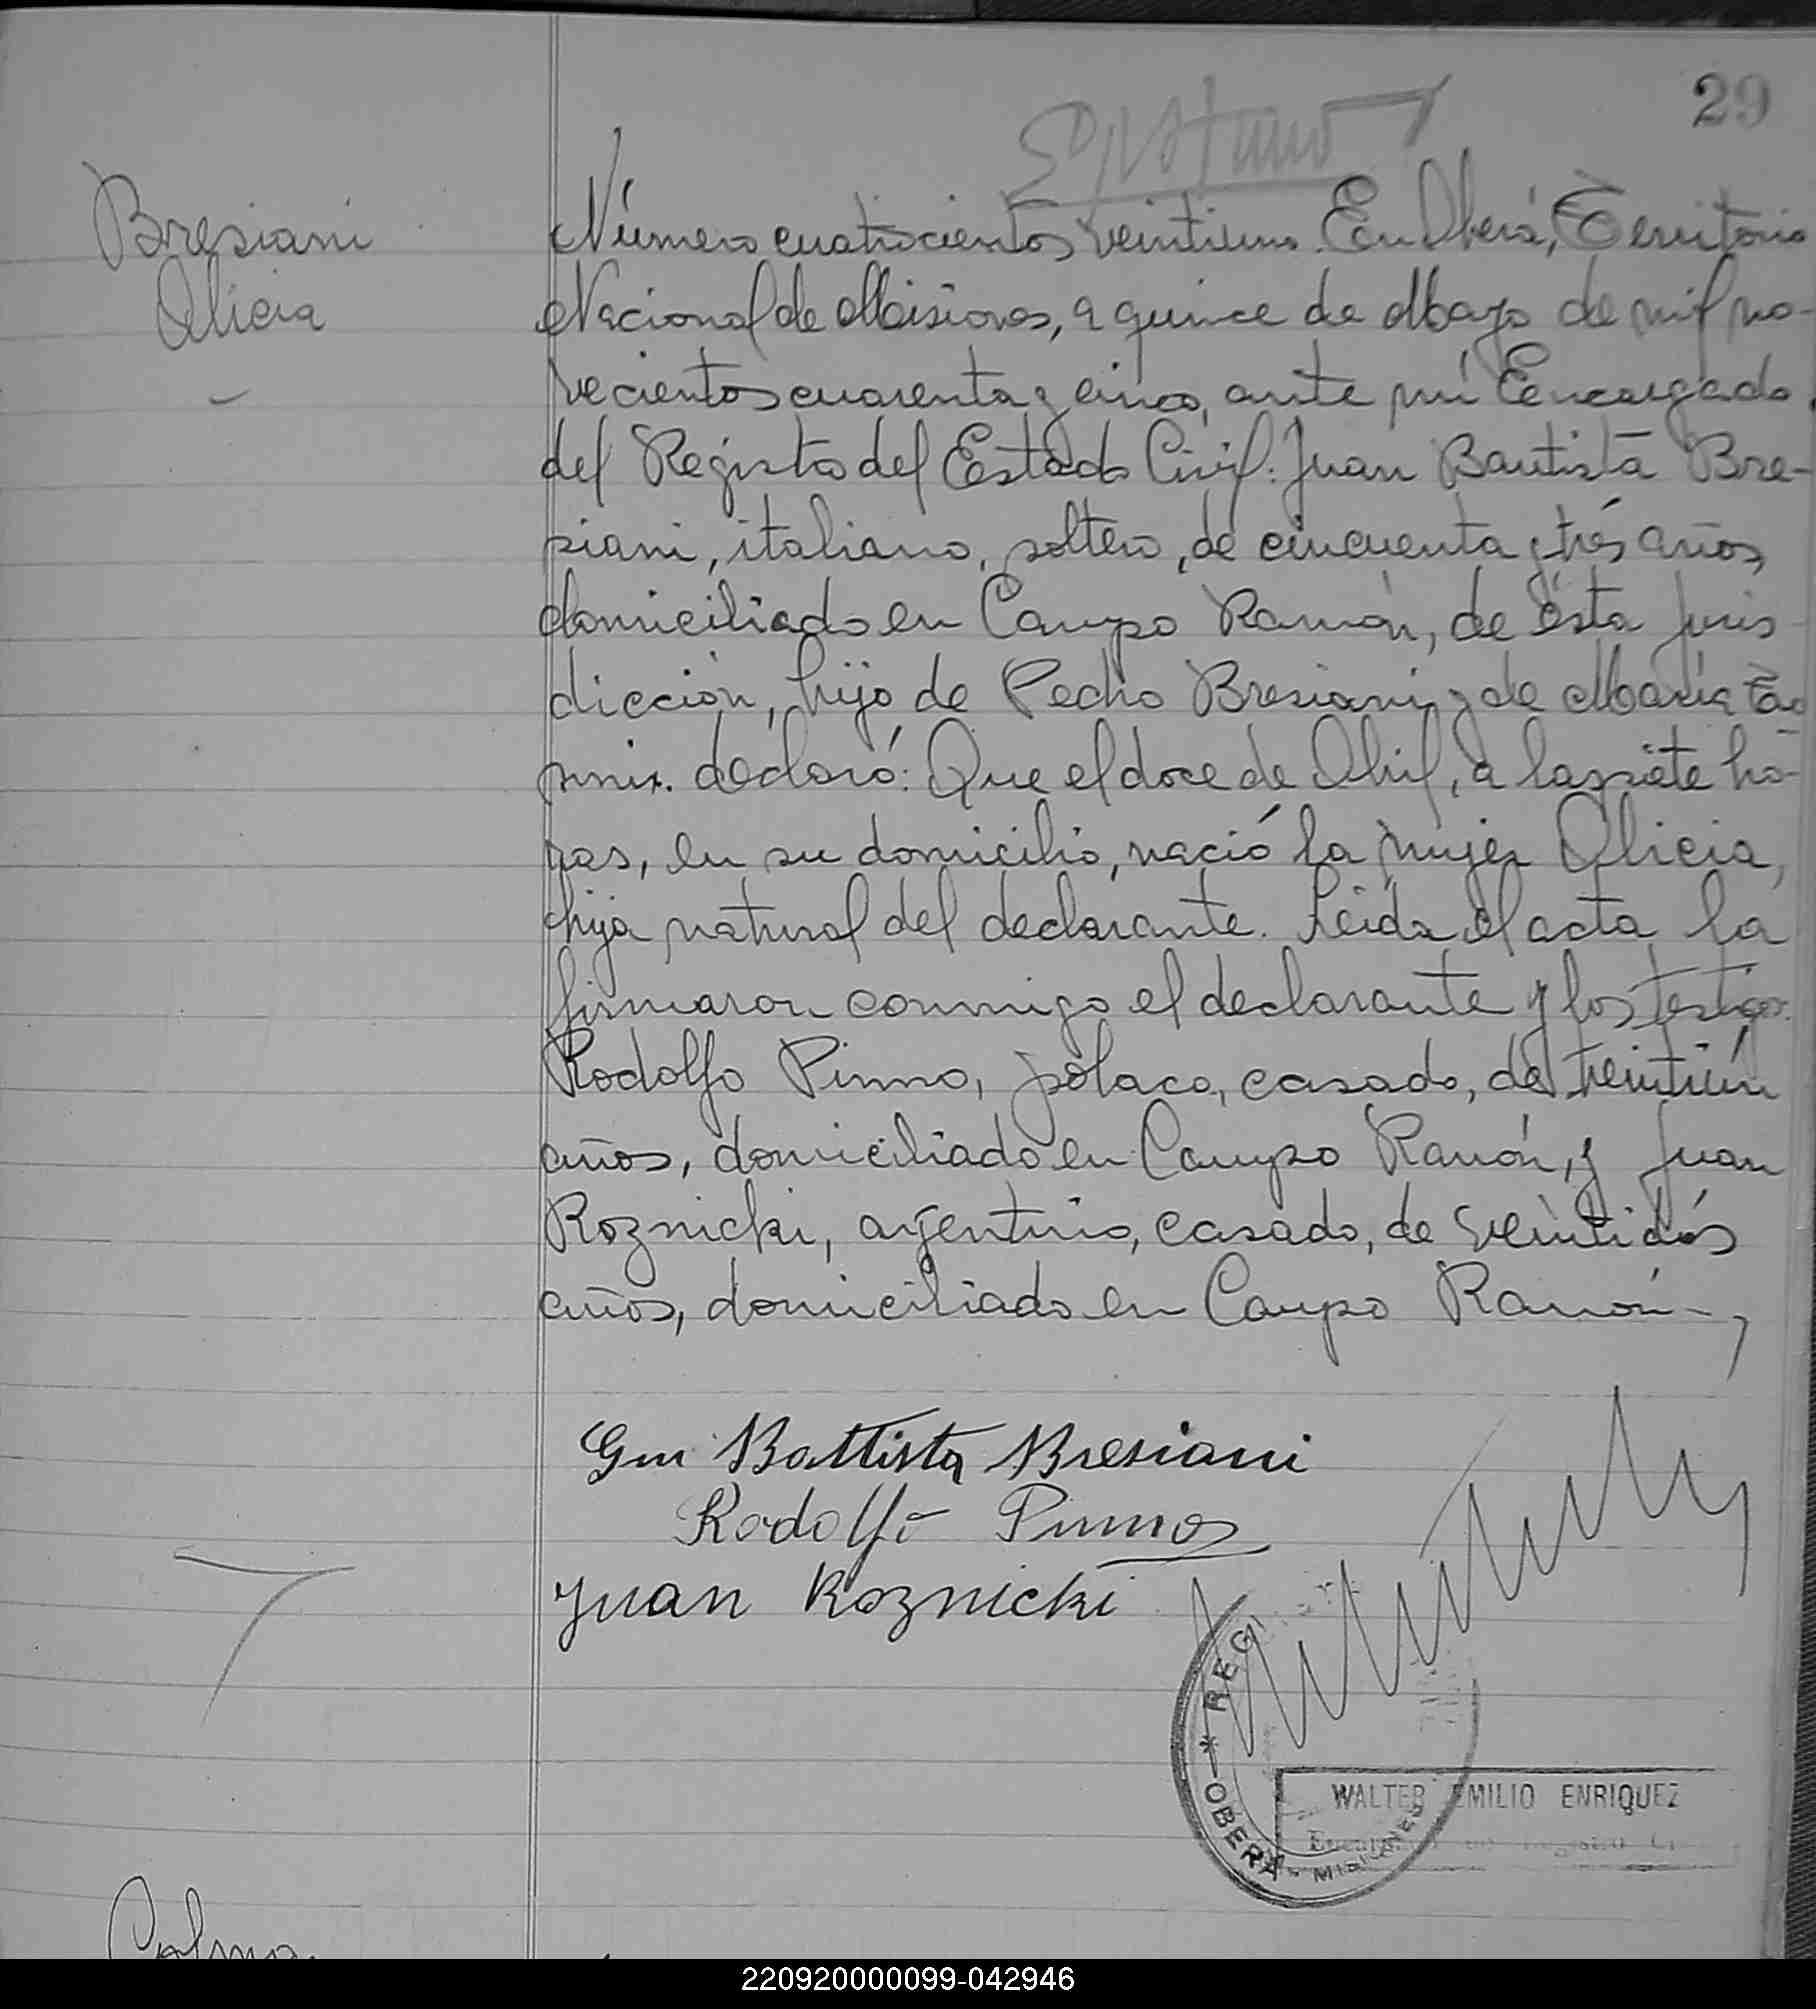 29
Bresiani
Alicia
Número cuatrocientos veintiuno. En Oberá, Territorio
Nacional de Misiones, a quince de Mayo de mil no-
vecientos cuarenta y cinco, ante mí Encargado
del Registro del Estado Civil: Juan Bautista Bre-
siani, italiano, soltero, de cincuenta y trés años,
domiciliado en Campo Ramón, de ésta juris
dicción, hijo de Pedro Bresiani y de María
declaró: Que el doce de Abril, a las siete ho-
ras, en su domicilio, nació la mujer Alicia,
hija natural del declarante. Leida el acta, la
firmaron conmigo el declarante y los testigos:
Rodolfo Pinno, polaco, casado, de treintiún
años, domiciliado en Campo Ramón, y Juan
Roznicki, argentino, casado, de veintidós
años, domiciliado en Campo Ramón-
Battista Bresiani
Rodolfo Pinno
Juan Roznicki
REGI
* OBERÁ - MISIONES
WALTER EMILIO ENRIQUEZ
220920000099-042946